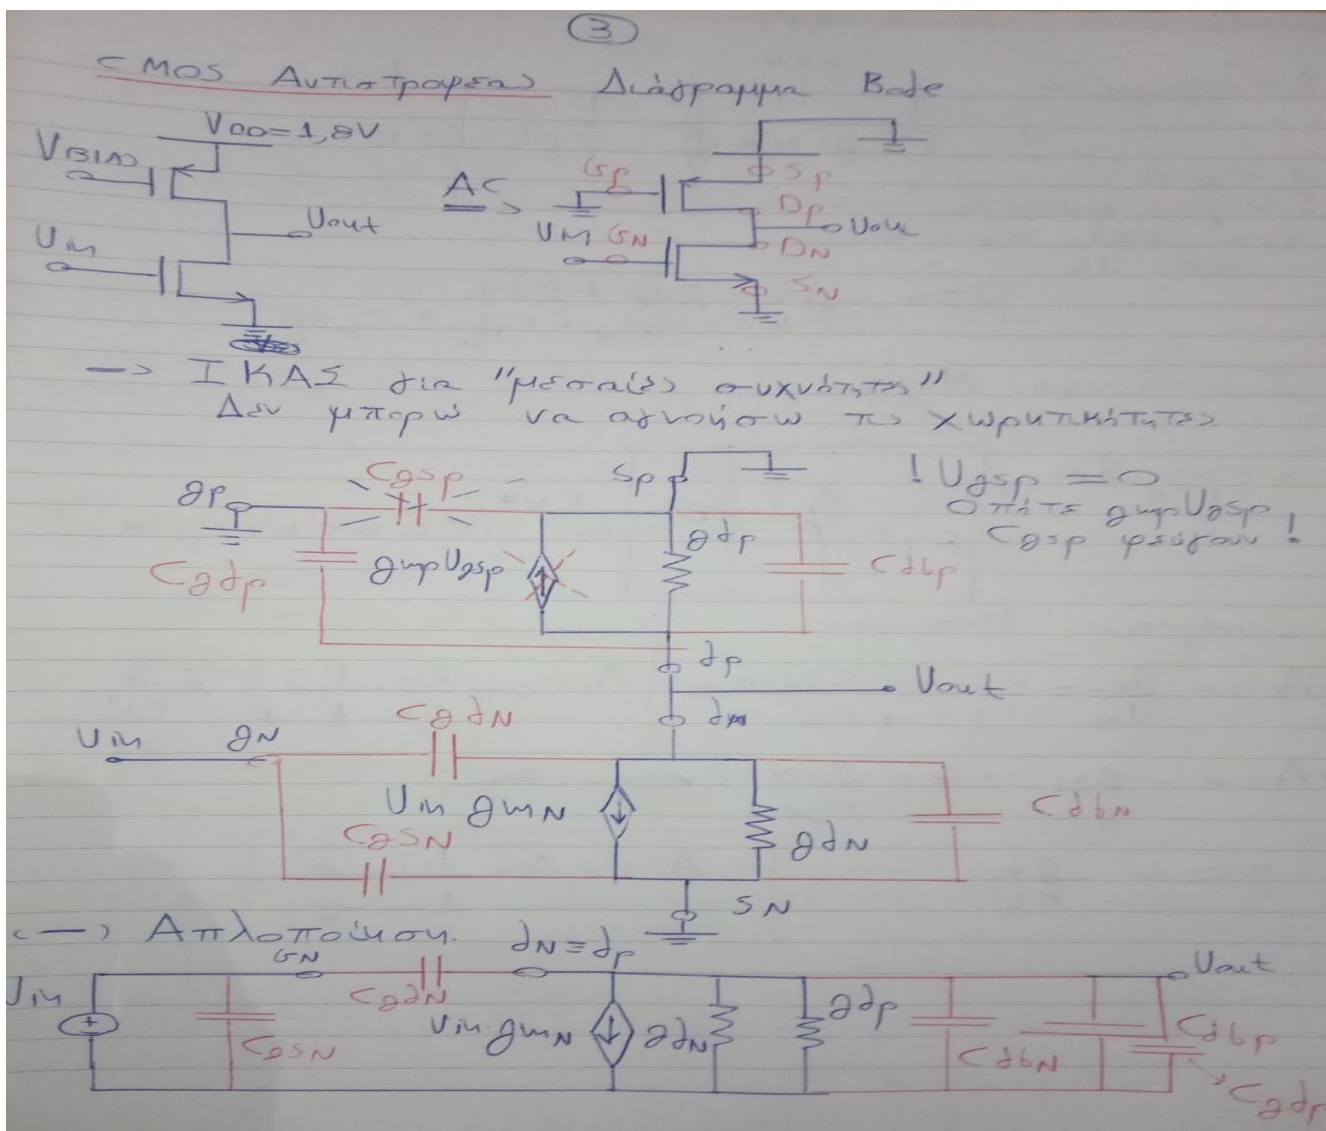 3
CMOS Αντιστροφέας Διάγραμμα Bode
VDD=1,8V
VBIAS
Vout
Vin
AC
Gp
Sp
Dp
Vout
Vin GN
DN
SN
-> ΙΚΑΣ για "μεσαίες συχνότητες"
Δεν μπορώ να αγνοήσω τις χωρητικότητες
Cgsp
Sp
! Vgsp = 0
gp
Οπότε gmpVgsp,
Cgsp φεύγουν!
Cgdp
gmpVgsp
gdp
Cdbp
dp
Vout
CgdN
dN
Vin gN
Vin gmN
CgSN
gdN
CdbN
SN
<-> Απλοποίηση
GN
dN≡dp
Vout
Vin
CgSN
CgdN
Vin·gmN
gdN
gdp
CdbN
Cdbp
Cgdp